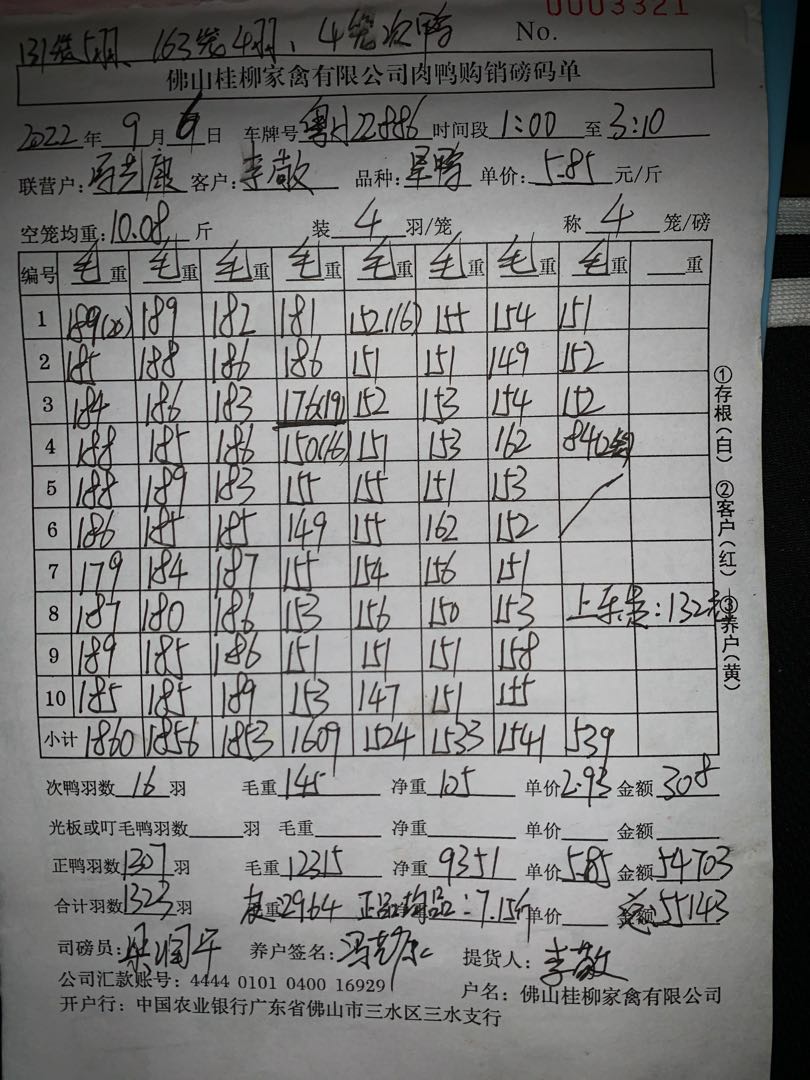 0003321
131笼5羽、163笼4羽、4笼次鸭 No.
佛山桂柳家禽有限公司肉鸭购销磅码单
2022年9月6日 车牌号 22886 时间段 1:00 至 3:10
联营户: 客户:李敬 品种: 单价:5.85元/斤
空笼均重:10.08斤 装4羽/笼 称4笼/磅
编号 毛重 毛重 毛重 毛重 毛重 毛重 毛重 毛重 重
1 189(20) 189 182 181 152(16) 155 154 151
2 185 188 186 186 151 151 149 152
3 184 186 183 176(19) 152 153 154 152
4 188 185 186 150(16) 151 153 162 84
5 188 189 183 155 155 151 153
6 186 185 185 149 155 162 152
7 179 184 187 155 154 156 151
8 187 180 186 153 156 150 153 上车费:132元
9 189 185 186 151 151 151 158
10 185 185 189 153 147 151 155
小计 1860 1856 1853 1609 1524 1533 1541 539
次鸭羽数16羽 毛重145 净重105 单价2.93 金额308
光板或叮毛鸭羽数 羽 毛重 净重 单价 金额
正鸭羽数1307羽 毛重12315 净重9351 单价5.85 金额54703
合计羽数1323羽 重2964 正品均品:7.15斤 单价 总额55143
司磅员:梁润平 养户签名: 提货人:李敬
公司汇款账号:4444 0101 0400 16929 户名:佛山桂柳家禽有限公司
开户行:中国农业银行广东省佛山市三水区三水支行
①存根(白) ②客户(红) ③养户(黄)